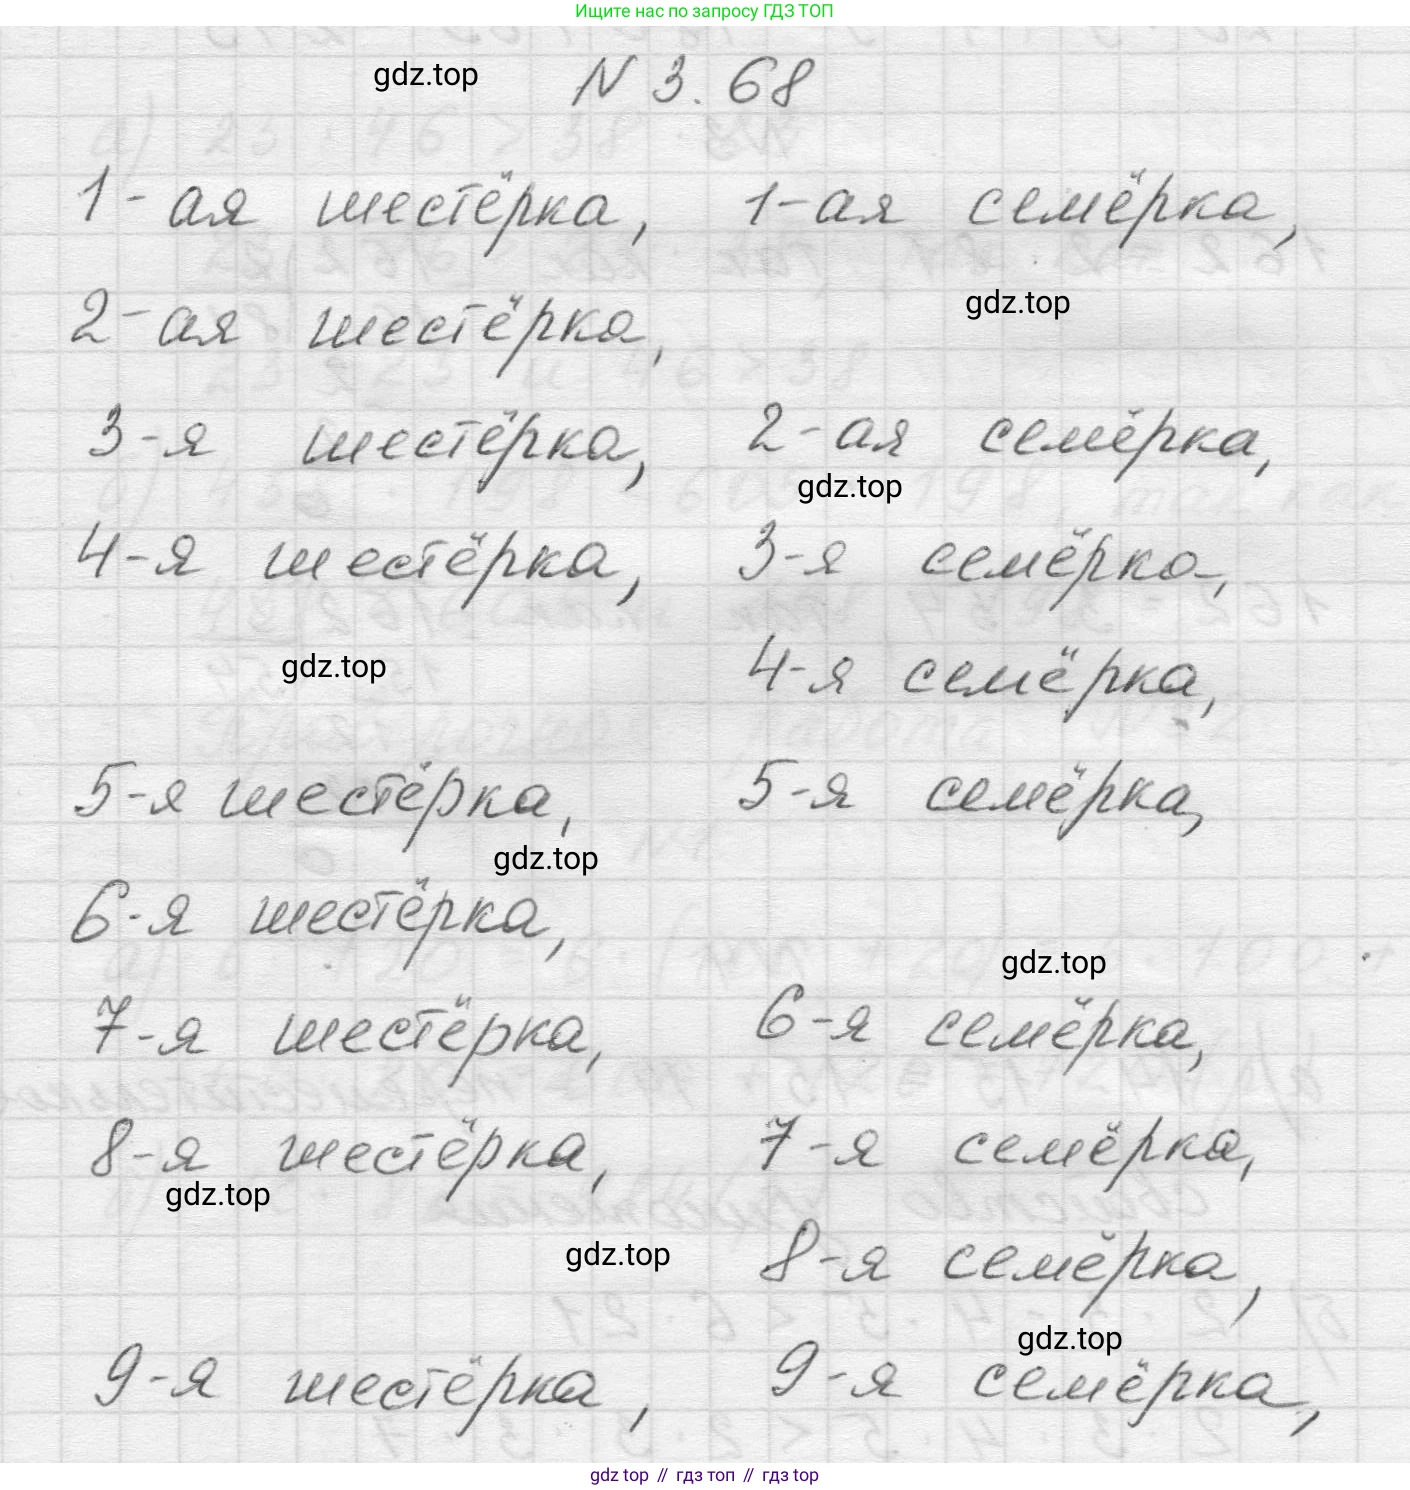 Ищите нас по запросу ГДЗ ТОП
gdz.top
N 3.68
1-ая шестёрка, 1-ая семёрка,
gdz.top
2-ая шестёрка,
3-я шестёрка, 2-ая семёрка,
gdz.top
4-я шестёрка, 3-я семёрка,
gdz.top
4-я семёрка,
5-я шестёрка, 5-я семёрка,
gdz.top
6-я шестёрка,
gdz.top
7-я шестёрка, 6-я семёрка,
8-я шестёрка, 7-я семёрка,
gdz.top
gdz.top
8-я семёрка,
gdz.top
9-я шестёрка, 9-я семёрка,
gdz top // гдз топ // gdz top